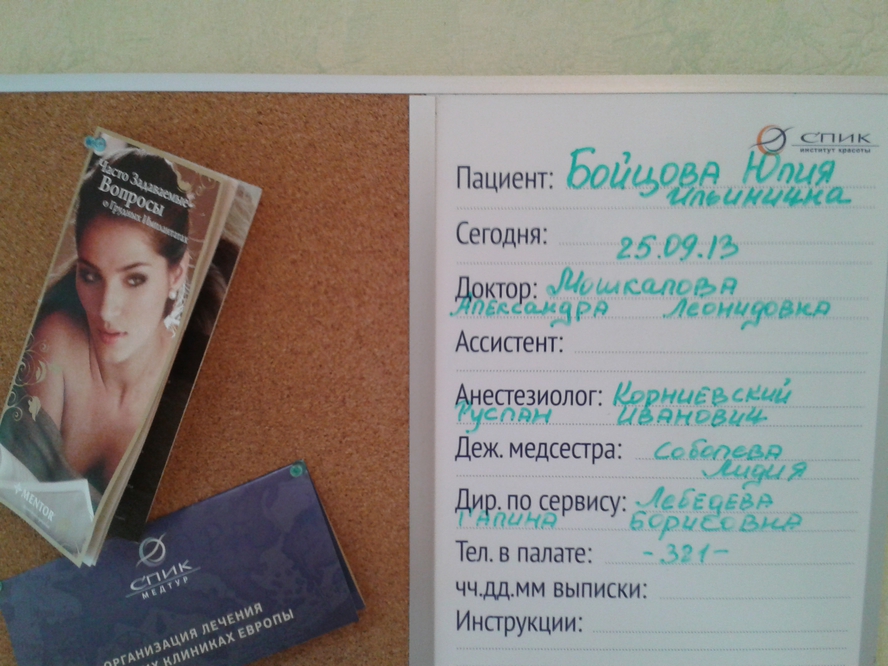 Часто Задаваемые
Вопросы
о Грудных Имплантатах
MENTOR
СПИК
МЕДТУР
ОРГАНИЗАЦИЯ ЛЕЧЕНИЯ
КЛИНИКАХ ЕВРОПЫ
СПИК
институт красоты
Пациент: Бойцова Юлия
Ильинична
Сегодня: 25.09.13
Доктор: Мошкалова
Александра Леонидовна
Ассистент:
Анестезиолог: Корниевский
Руслан Иванович
Деж. медсестра: Соболева
Лидия
Дир. по сервису: Лебедева
Галина Борисовна
Тел. в палате: -321-
чч.дд.мм выписки:
Инструкции: